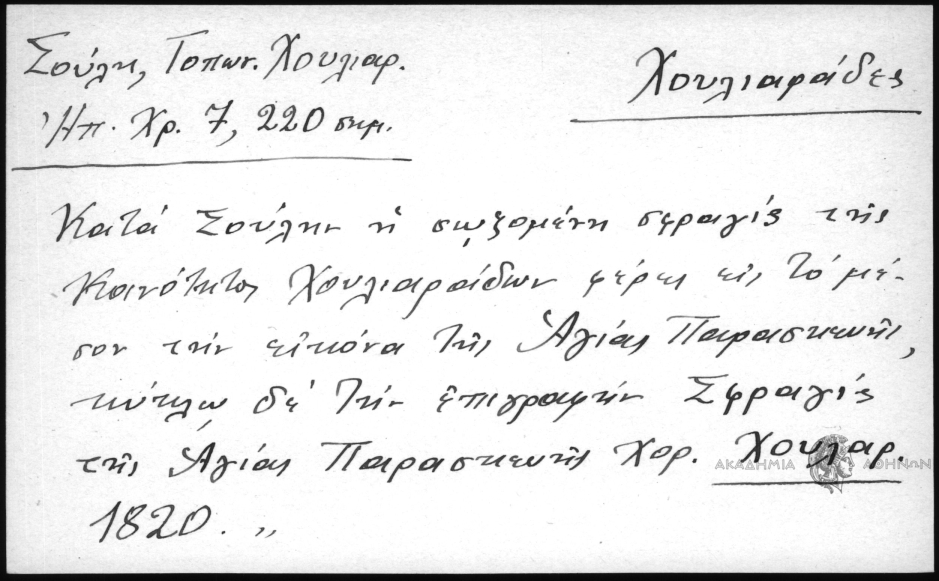 Σούλη, Τοπων. Χουλιαρ.
Ἠπ. Χρ. 7, 220 σημ.
Χουλιαράδες
Κατά Σούλην ἡ σῳζομένη σφραγίς τῆς
Κοινότητος Χουλιαράδων φέρει εἰς τό μέ-
σον τήν εἰκόνα τῆς Ἁγίας Παρασκευῆς,
κύκλῳ δέ τήν ἐπιγραφήν Σφραγίς
τῆς Ἁγίας Παρασκευῆς Χορ. Χουλαρ.
1820. „
ΑΚΑΔΗΜΙΑ ΑΘΗΝΩΝ